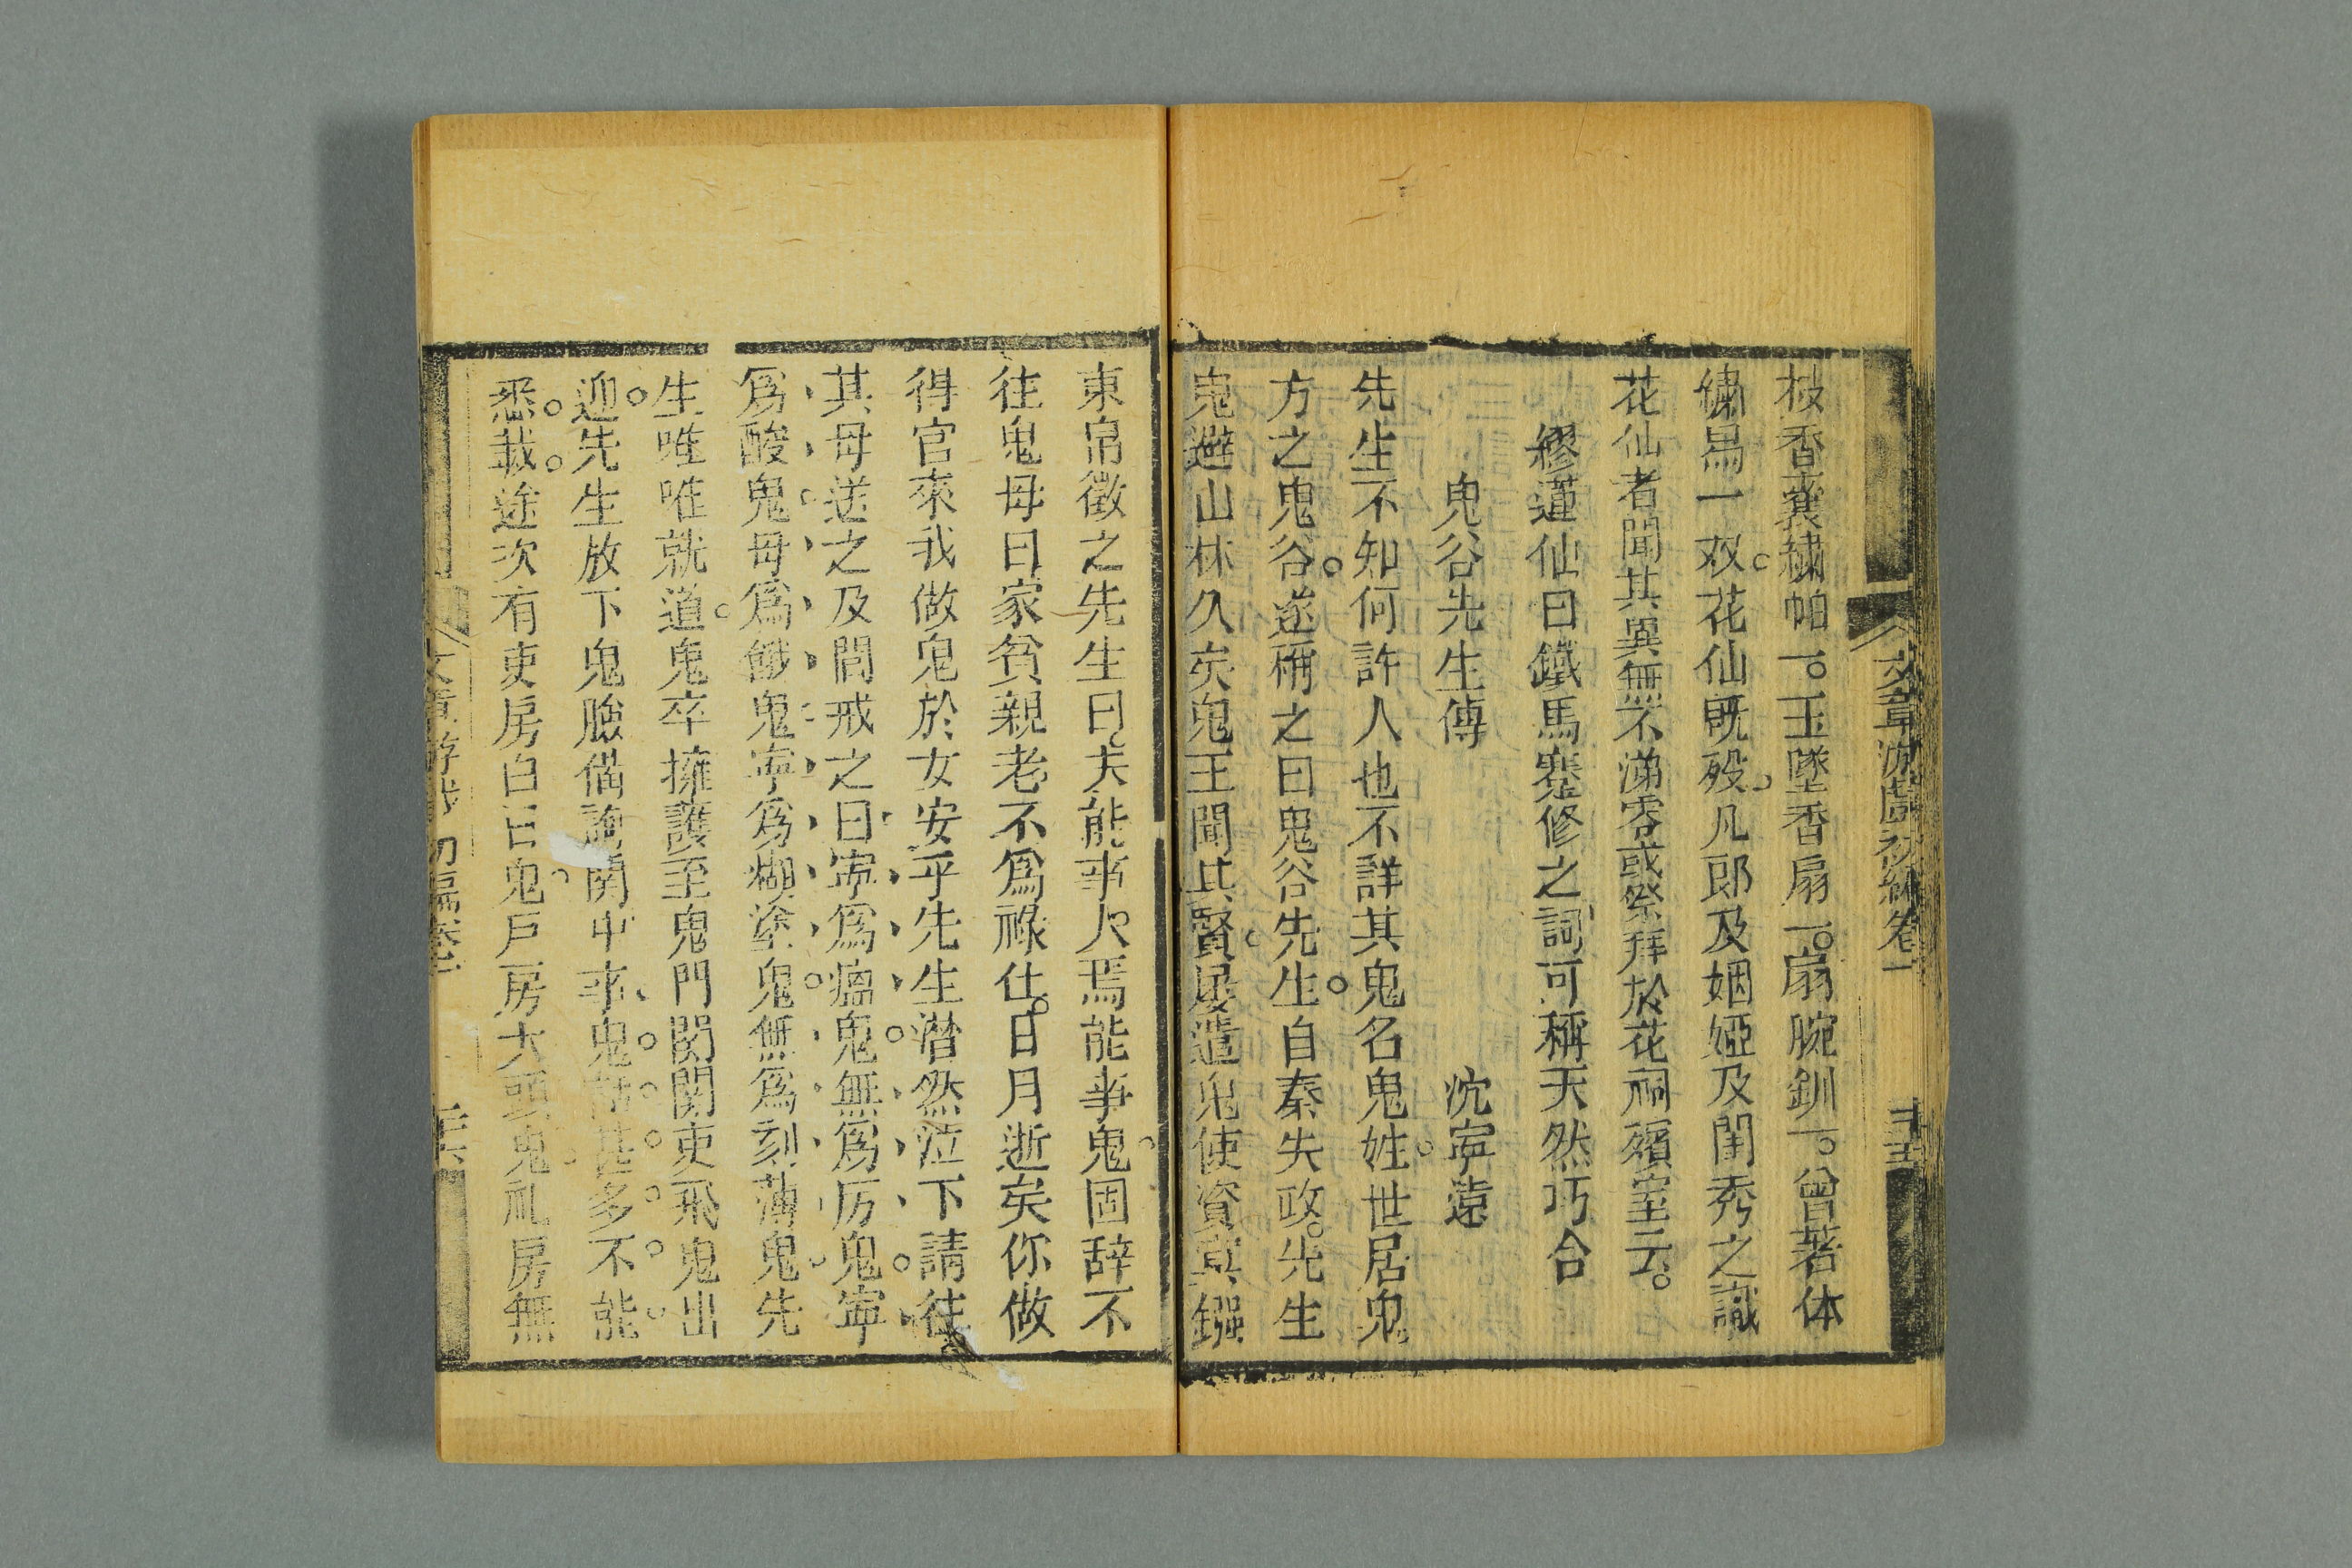 文章游戲初編卷一
二十五
枝香囊繡帕一。玉墜香扇一。扇腕釧一。曾著体
繡舄一双花仙既殁凡郎及姻婭及閨秀之識
花仙者聞其異無不涕零或祭拜於花祠殯室云。
繆蓮仙曰鐵馬蹇修之詞可稱天然巧合
鬼谷先生傳
沈寧遠
先生不知何許人也不詳其鬼名鬼姓世居鬼
方之鬼谷遂稱之曰鬼谷先生自秦失政先生
鬼避山林久矣鬼王聞其賢屡遣鬼使資冥鏹
東帛徵之先生曰夫能事人焉能事鬼固辞不
往鬼母曰家貧親老不爲祿仕日月逝矣你做
得官來我做鬼於女安乎先生潜然泣下請往
其母送之及門戒之曰寧爲瘟鬼無爲厉鬼寧
爲酸鬼毋爲餓鬼寧爲糊塗鬼無爲刻薄鬼先
生唯唯就道鬼卒擁護至鬼門関関吏飛鬼出
迎先生放下鬼臉備詢関中事鬼話甚多不能
悉載途次有吏房白日鬼户房大頭鬼礼房無
文章游戲初編卷一
二十六